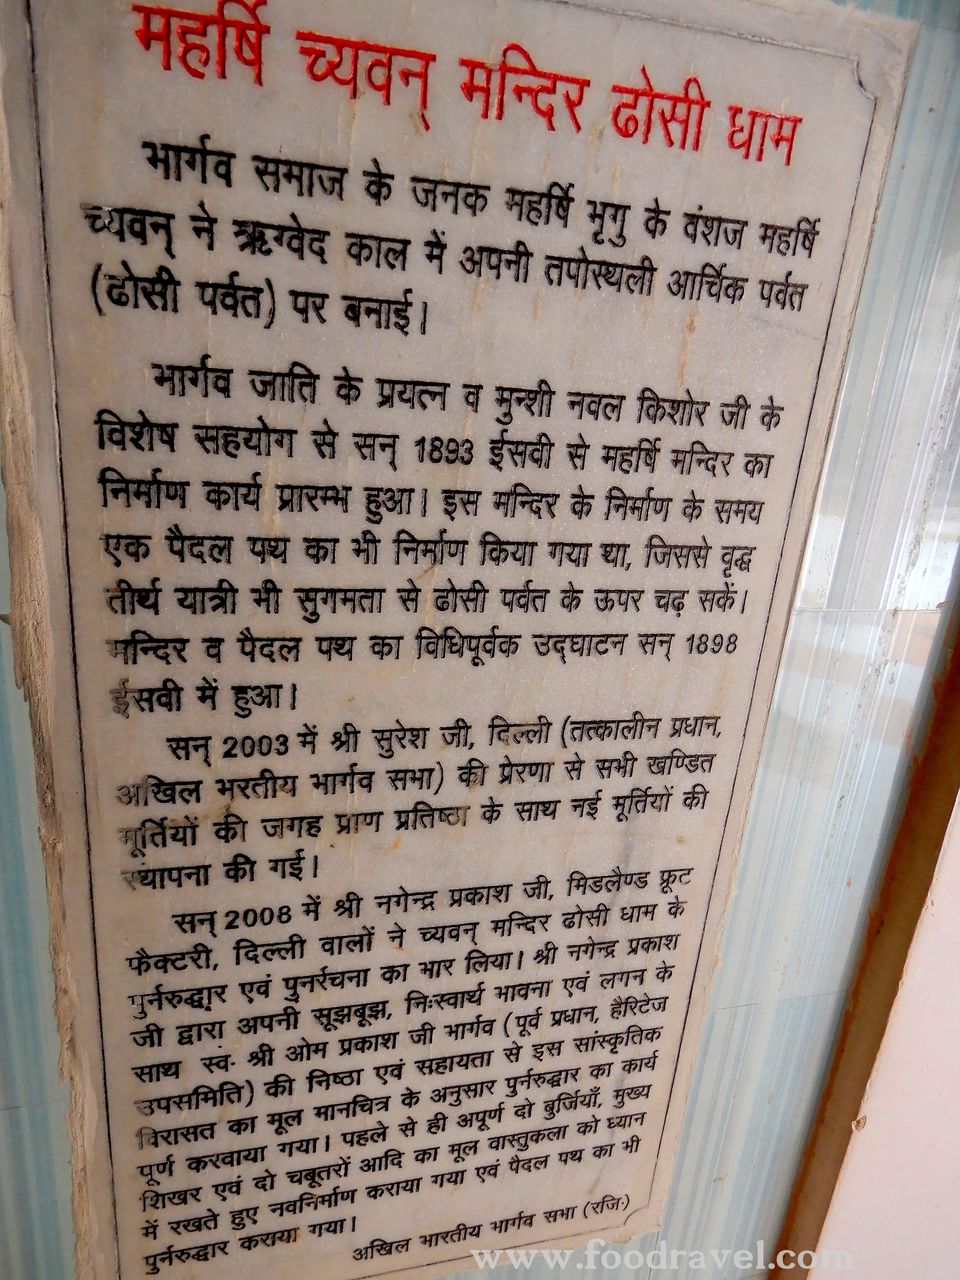 महर्षि च्यवन् मन्दिर ढोसी धाम
भार्गव समाज के जनक महर्षि भृगु के वंशज महर्षि
च्यवन् ने ऋग्वेद काल में अपनी तपोस्थली आर्चिक पर्वत
(ढोसी पर्वत) पर बनाई।
भार्गव जाति के प्रयत्न व मुन्शी नवल किशोर जी के
विशेष सहयोग से सन् 1893 ईसवी से महर्षि मन्दिर का
निर्माण कार्य प्रारम्भ हुआ। इस मन्दिर के निर्माण के समय
एक पैदल पथ का भी निर्माण किया गया था, जिससे वृद्ध
तीर्थ यात्री भी सुगमता से ढोसी पर्वत के ऊपर चढ़ सकें।
मन्दिर व पैदल पथ का विधिपूर्वक उद्घाटन सन् 1898
ईसवी में हुआ।
सन् 2003 में श्री सुरेश जी, दिल्ली (तत्कालीन प्रधान,
अखिल भरतीय भार्गव सभा) की प्रेरणा से सभी खण्डित
मूर्तियों की जगह प्राण प्रतिष्ठा के साथ नई मूर्तियों की
स्थापना की गई।
सन् 2008 में श्री नगेन्द्र प्रकाश जी, मिडलैण्ड फ्रूट
फैक्टरी, दिल्ली वालों ने च्यवन् मन्दिर ढोसी धाम के
पुर्नरुद्धार एवं पुनर्रचना का भार लिया। श्री नगेन्द्र प्रकाश
जी द्वारा अपनी सूझबूझ, निःस्वार्थ भावना एवं लगन के
साथ स्व. श्री ओम प्रकाश जी भार्गव (पूर्व प्रधान, हैरिटेज
उपसमिति) की निष्ठा एवं सहायता से इस सांस्कृतिक
विरासत का मूल मानचित्र के अनुसार पुर्नरुद्धार का कार्य
पूर्ण करवाया गया। पहले से ही अपूर्ण दो बुर्जियाँ, मुख्य
शिखर एवं दो चबूतरों आदि का मूल वास्तुकला को ध्यान
में रखते हुए नवनिर्माण कराया गया एवं पैदल पथ का भी
पुर्नरुद्धार कराया गया।
अखिल भारतीय भार्गव सभा (रजि.)
www.foodravel.com